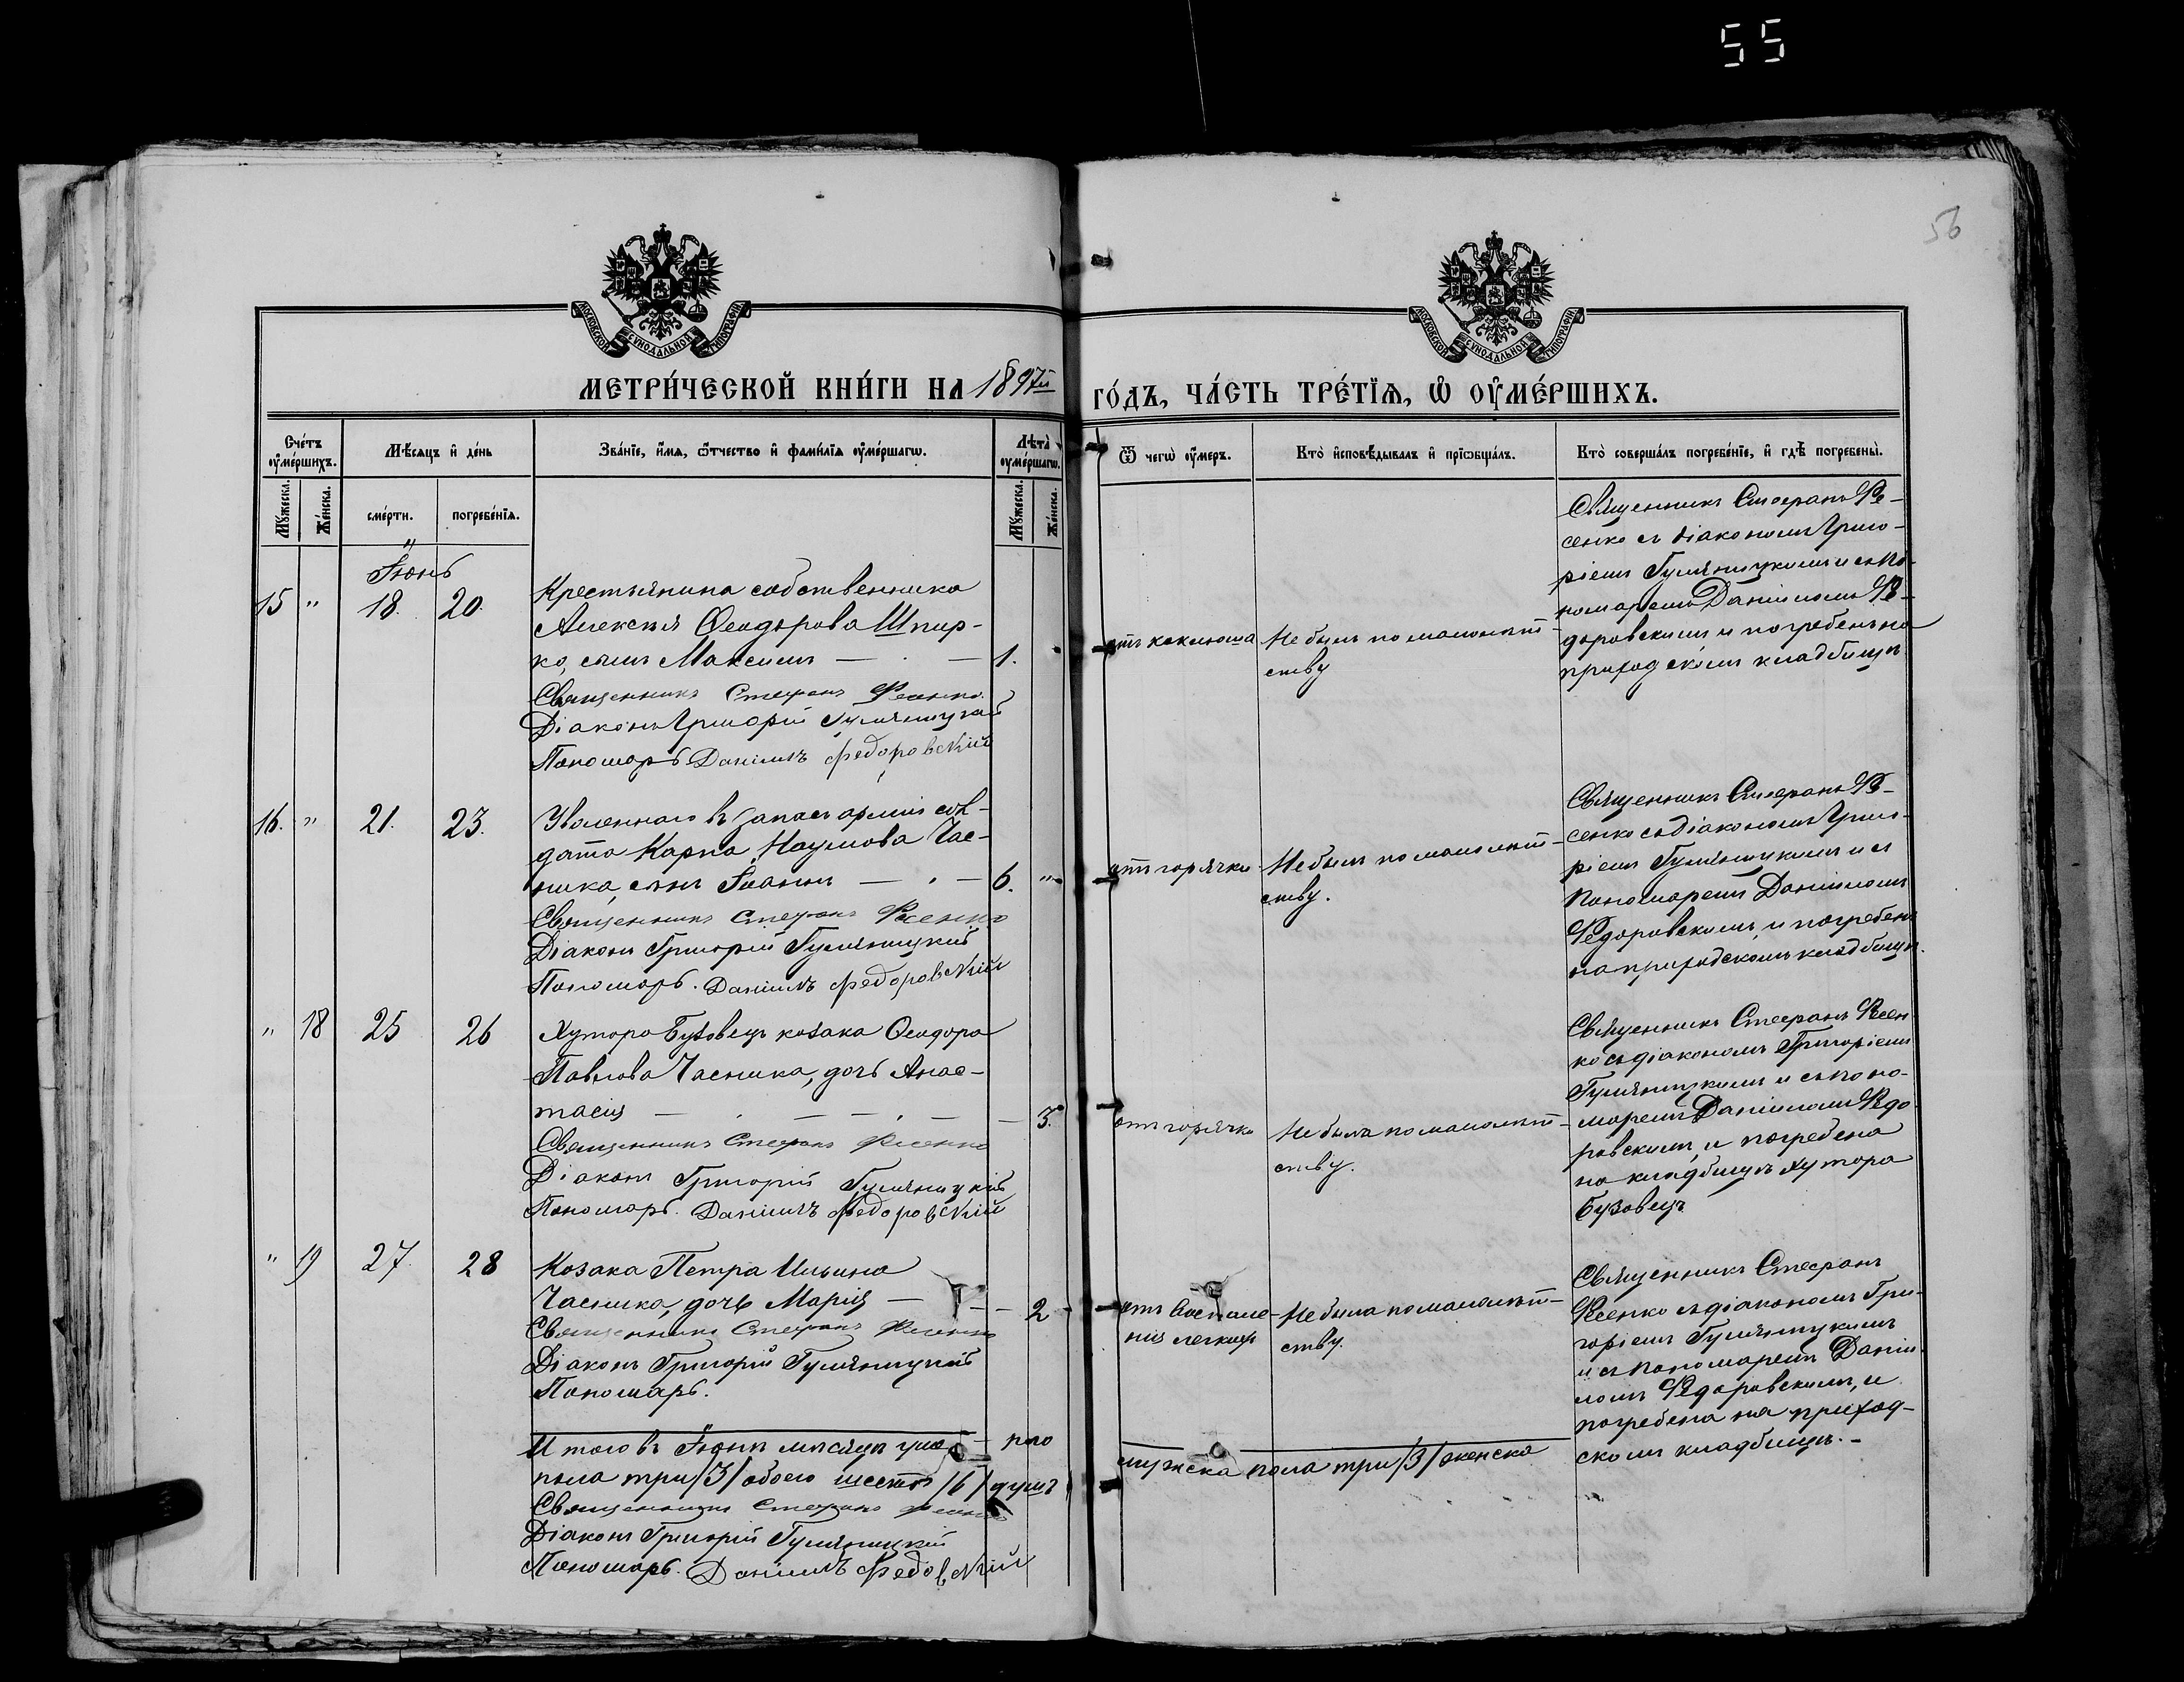 55
56
МОСКОВСКОЙ СѴНОДАЛЬНОЙ ТИПОГРАФІИ
МОСКОВСКОЙ СѴНОДАЛЬНОЙ ТИПОГРАФІИ
МЕТРИ́ЧЕСКОЙ КНИ́ГИ НА 1897й ГО́ДЪ, ЧА́СТЬ ТРЕ́ТІѦ, Ѡ҆ ОУ҆МЕ́РШИХЪ.
Сче́тъ оу҆ме́ршихъ.
Мѣ́сяцъ и҆ де́нь
Зва́ніе, и҆́мя, ѻ҆́тчество и҆ фами́лїа оу҆ме́ршагѡ.
Лѣта̀ оу҆ме́ршагѡ.
Ѿ чегѡ̀ оу҆́меръ.
Кто̀ и҆сповѣ́дывалъ и҆ прїѡбща́лъ.
Кто̀ соверша́лъ погребе́нїе, и҆ гдѣ̀ погребены̀.
Мꙋ́жеска.
Же́нска.
сме́рти.
погребе́нїя.
Мꙋ́жеска.
Же́нска.
Іюнь
15 " 18. 20.
Крестьянина собственника
Алексѣя Ѳеодорова Шпир-
ко, сынъ Максимъ — 1.
Священникъ Стефанъ Фесенко
Діаконъ Григорій Гуляницкій
Пономарь Даніилъ Федоровскій
отъ коклюша
Не былъ по малолѣт-
ству
Священникъ Стефанъ Фе-
сенко съ діакономъ Григо-
ріемъ Гуляницкимъ и съ по-
номаремъ Даніиломъ Фе-
доровскимъ и погребенъ на
приходскомъ кладбищѣ
16. " 21. 23.
Уволеннаго въ запасъ арміи сол-
дата Карпа Наумова Час-
ника, сынъ Іоаннъ — 6. "
Священникъ Стефанъ Фесенко
Діаконъ Григорій Гуляницкій
Пономарь. Даніилъ Федоровскій
отъ горячки
Не былъ по малолѣт-
ству.
Священникъ Стефанъ Фе-
сенко съ діакономъ Григо-
ріемъ Гуляницкимъ и съ
пономаремъ Даніиломъ
Федоровскимъ, и погребенъ
на приходскомъ кладбищѣ.
" 18 25 26
Хутора Бузовецъ козака Ѳеодора
Павлова Часника, дочь Анас-
тасія — 3.
Священникъ Стефанъ Фесенко
Діаконъ Григорій Гуляницкій
Пономарь. Даніилъ Федоровскій
отъ горячки
Не была по малолѣт-
ству.
Священникъ Стефанъ Фесен-
ко съ діакономъ Григоріемъ
Гуляницкимъ и съ поно-
маремъ Даніиломъ Федо-
ровскимъ, и погребена
на кладбищѣ хутора
Бузовецъ
" 19 27. 28
Козака Петра Ильина
Часника, дочь Марія — 2
Священникъ Стефанъ Фесенко
Діаконъ Григорій Гуляницкій
Пономарь.
отъ воспале-
нія легкихъ
Не была по малолѣт-
ству.
Священникъ Стефанъ
Фесенко съ діакономъ Гри-
горіемъ Гуляницкимъ
и съ пономаремъ Даніи-
ломъ Федоровскимъ, и
погребена на приход-
скомъ кладбищѣ.—
Итого въ Іюнѣ мѣсяцѣ умерло мужска пола три /3/ женска
пола три /3/ обоего шесть /6/ душъ
Священникъ Стефанъ Фесенко
Діаконъ Григорій Гуляницкій
Пономарь. Даніилъ Федовскій